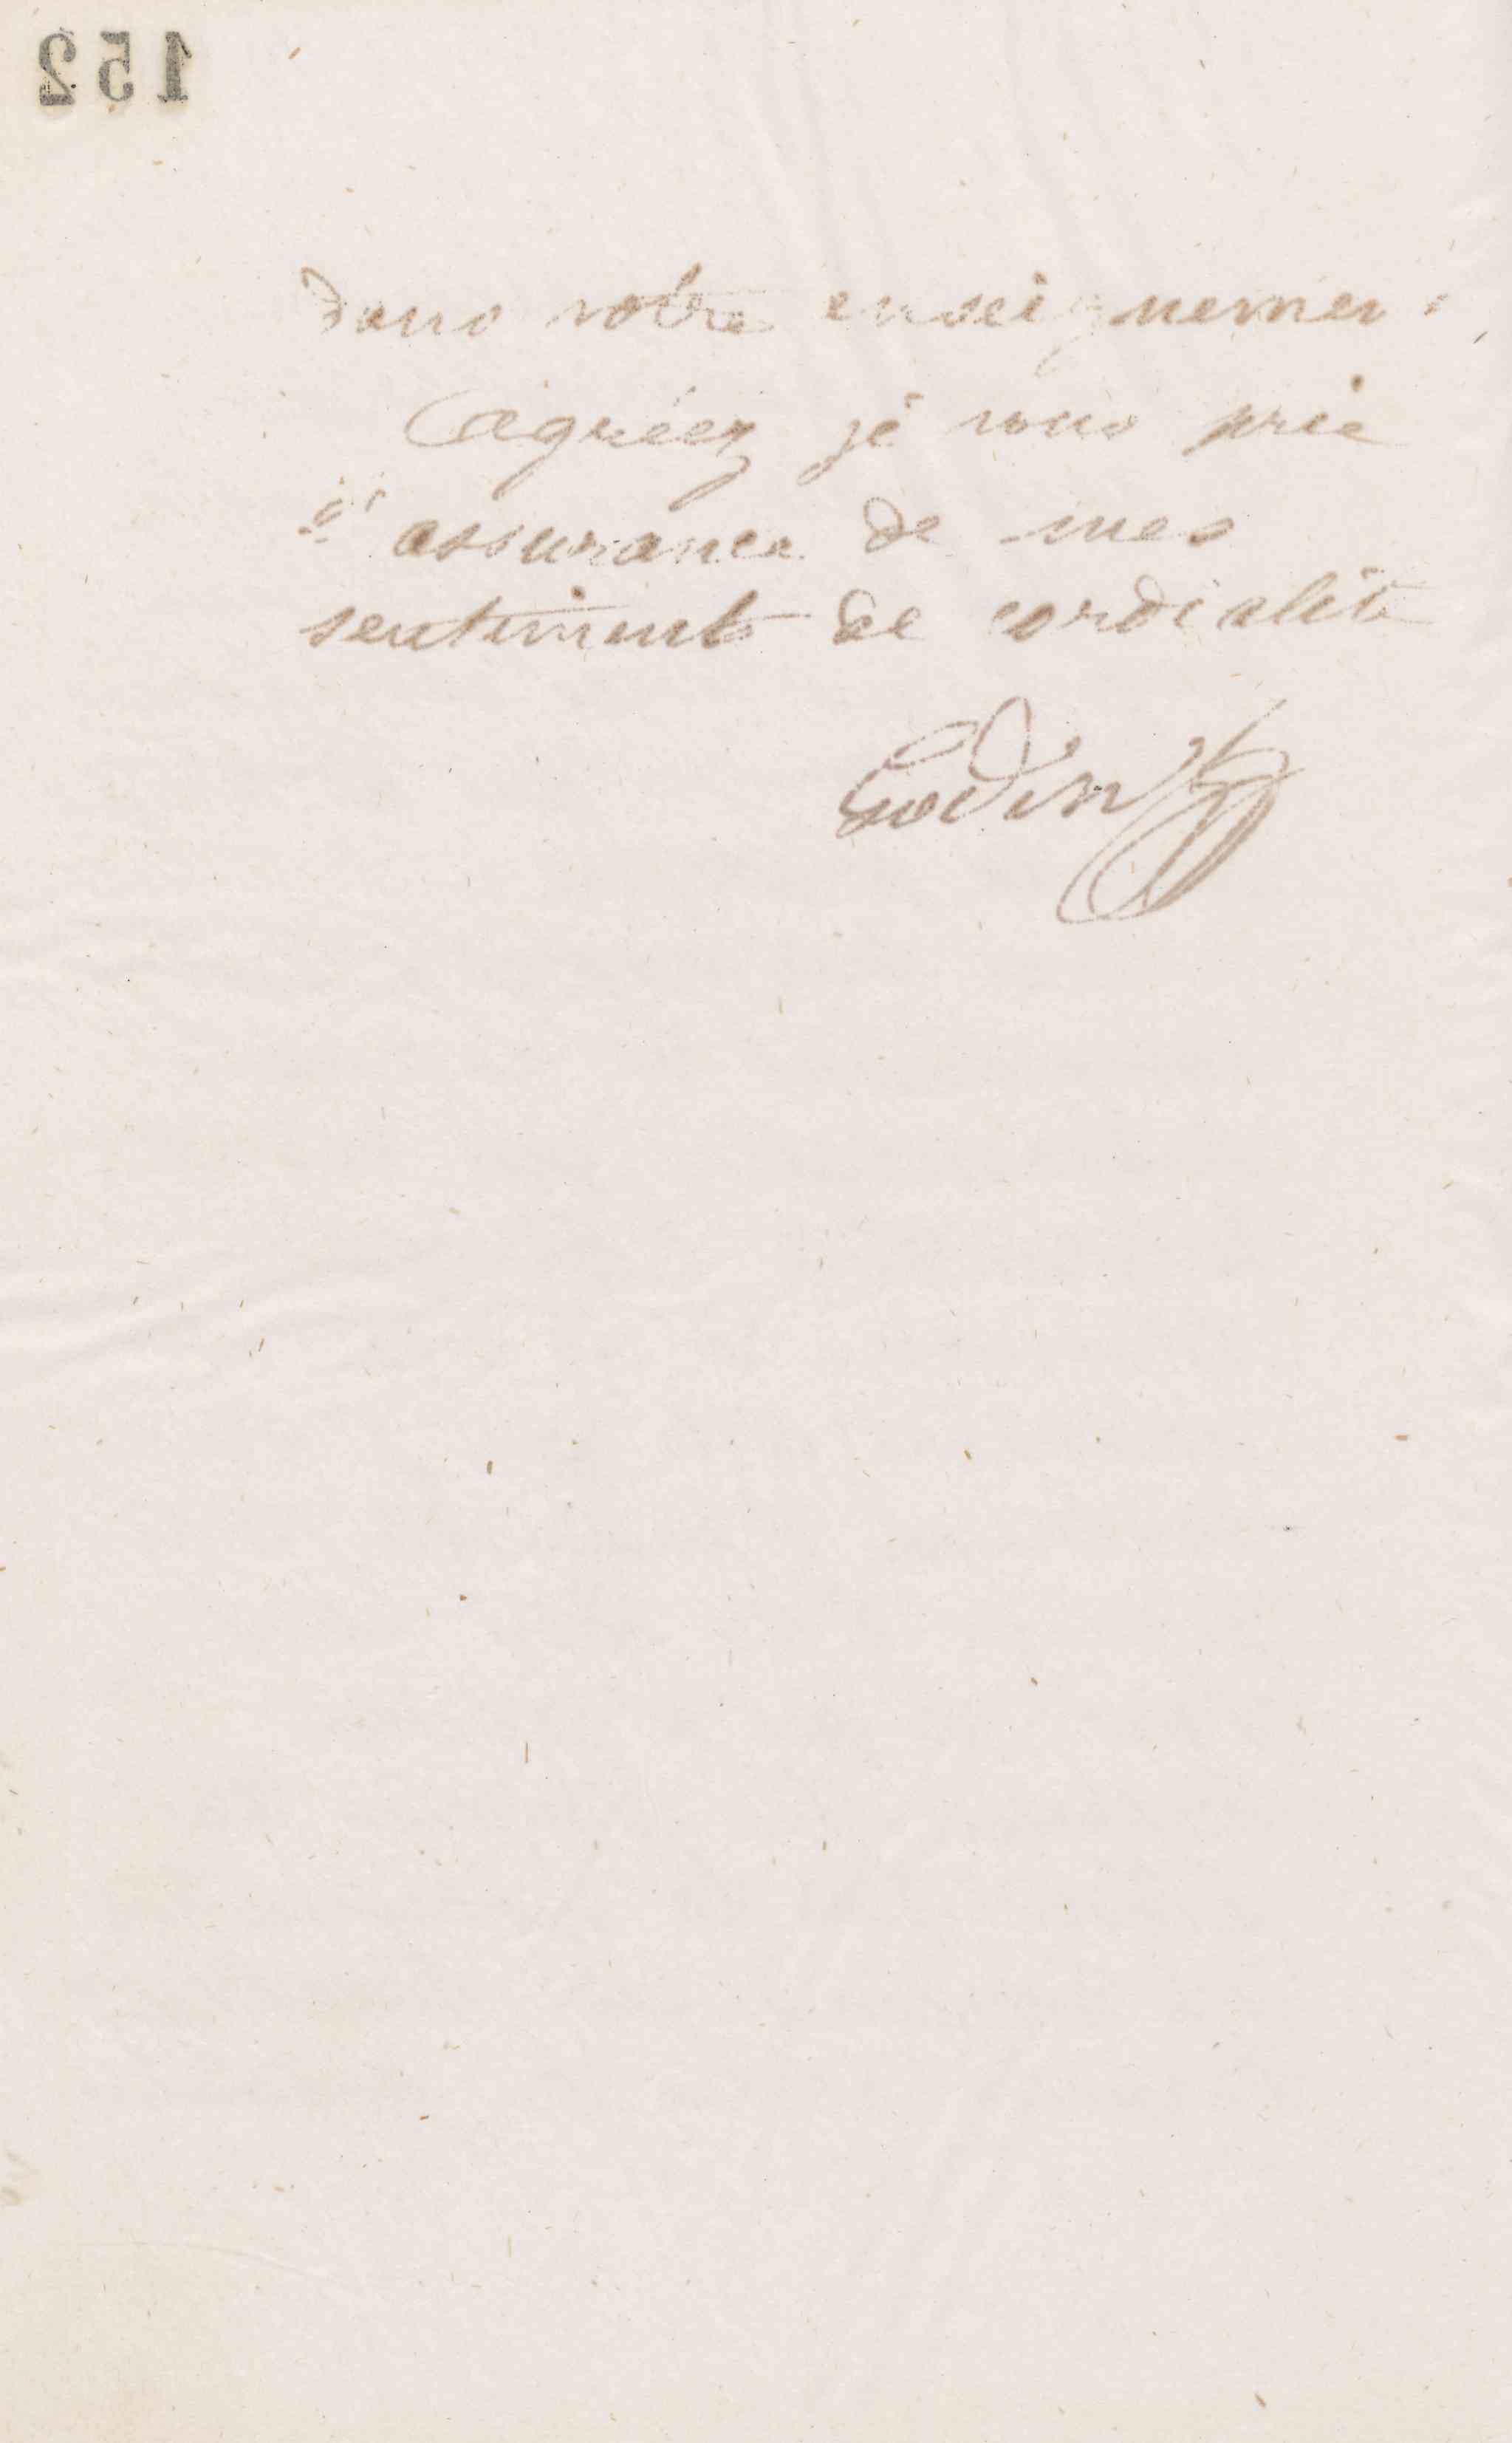 152
dans votre enseignement
Agréez je vous prie
l'assurance de mes
sentiments de cordialité
Godin